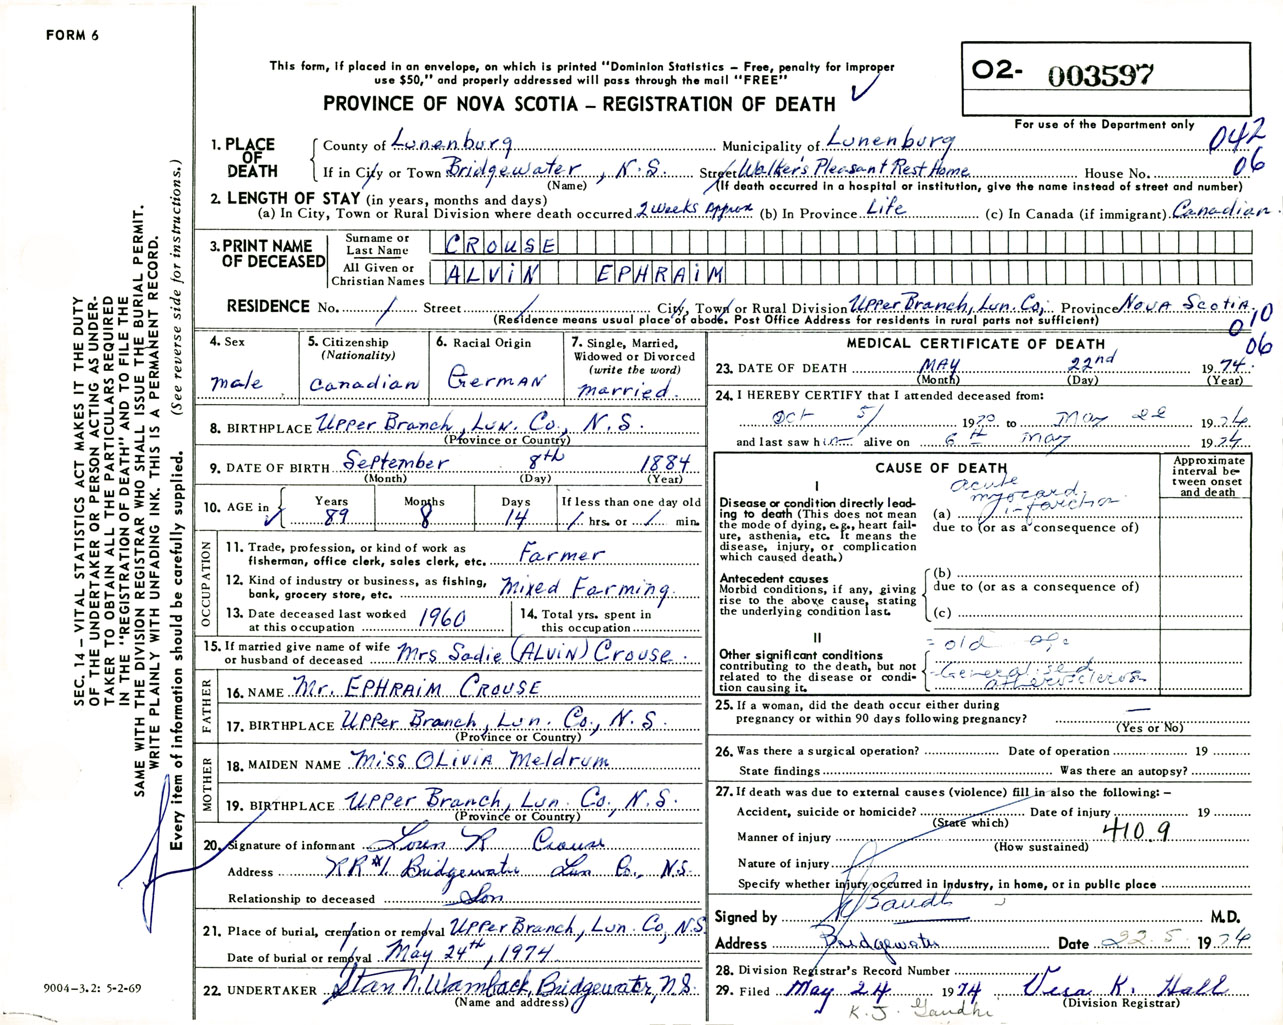 FORM 6
This form, if placed in an envelope, on which is printed "Dominion Statistics – Free, penalty for improper
use $50," and properly addressed will pass through the mail "FREE"
PROVINCE OF NOVA SCOTIA – REGISTRATION OF DEATH
O2- 003597
For use of the Department only
042
06
1. PLACE OF DEATH
County of Lunenburg Municipality of Lunenburg
If in City or Town Bridgewater, N.S. Street Walker's Pleasant Rest Home House No.
(Name) (If death occurred in a hospital or institution, give the name instead of street and number)
2. LENGTH OF STAY (in years, months and days)
(a) In City, Town or Rural Division where death occurred 2 weeks Approx (b) In Province Life (c) In Canada (if immigrant) Canadian
3. PRINT NAME OF DECEASED
Surname or Last Name CROUSE
All Given or Christian Names ALVIN EPHRAIM
RESIDENCE No. / Street / City, Town or Rural Division Upper Branch, Lun. Co., Province Nova Scotia
(Residence means usual place of abode. Post Office Address for residents in rural parts not sufficient)
010
06
4. Sex
male
5. Citizenship
(Nationality)
Canadian
6. Racial Origin
German
7. Single, Married,
Widowed or Divorced
(write the word)
married.
8. BIRTHPLACE Upper Branch, Lun. Co., N.S.
(Province or Country)
9. DATE OF BIRTH September 8th 1884
(Month) (Day) (Year)
10. AGE in Years 89 Months 8 Days 14 If less than one day old / hrs. or / min.
OCCUPATION
11. Trade, profession, or kind of work as
fisherman, office clerk, sales clerk, etc. Farmer
12. Kind of industry or business, as fishing,
bank, grocery store, etc. Mixed Farming.
13. Date deceased last worked
at this occupation 1960
14. Total yrs. spent in
this occupation
15. If married give name of wife
or husband of deceased Mrs Sadie (ALVIN) Crouse.
FATHER
16. NAME Mr. EPHRAIM CROUSE
17. BIRTHPLACE Upper Branch, Lun. Co., N.S.
(Province or Country)
MOTHER
18. MAIDEN NAME Miss OLIVIA Meldrum
19. BIRTHPLACE Upper Branch, Lun. Co., N.S.
(Province or Country)
20. Signature of informant Loren R Crouse
Address RR #1, Bridgewater Lun Co., N.S.
Relationship to deceased Son
21. Place of burial, cremation or removal Upper Branch, Lun. Co, N.S.
Date of burial or removal May 24th, 1974
22. UNDERTAKER Stan N. Wamback, Bridgewater, N.S.
(Name and address)
MEDICAL CERTIFICATE OF DEATH
23. DATE OF DEATH MAY 22nd 1974.
(Month) (Day) (Year)
24. I HEREBY CERTIFY that I attended deceased from:
Oct 5/ 1970 to May 22 1974
and last saw him alive on 6th May 1974
CAUSE OF DEATH
Approximate
interval be-
tween onset
and death
I
Disease or condition directly lead-
ing to death (This does not mean
the mode of dying, e.g., heart fail-
ure, asthenia, etc. It means the
disease, injury, or complication
which caused death.)
acute
myocard.
(a) infarction
due to (or as a consequence of)
Antecedent causes
Morbid conditions, if any, giving
rise to the above cause, stating
the underlying condition last.
(b)
due to (or as a consequence of)
(c)
II
Other significant conditions
contributing to the death, but not
related to the disease or condi-
tion causing it.
= old age
= Generalised
atherosclerosis
25. If a woman, did the death occur either during
pregnancy or within 90 days following pregnancy? —
(Yes or No)
26. Was there a surgical operation? Date of operation 19
State findings Was there an autopsy?
27. If death was due to external causes (violence) fill in also the following: –
Accident, suicide or homicide? Date of injury 19
(State which)
Manner of injury 410.9
(How sustained)
Nature of injury
Specify whether injury occurred in Industry, in home, or in public place
Signed by KJ Gandhi M.D.
Address Bridgewater Date 22.5. 1974
28. Division Registrar's Record Number
29. Filed May 24 1974 Vera K. Hall
(Division Registrar)
K. J. Gandhi
SEC. 14 – VITAL STATISTICS ACT MAKES IT THE DUTY
OF THE UNDERTAKER OR PERSON ACTING AS UNDER-
TAKER TO OBTAIN ALL THE PARTICULARS REQUIRED
IN THE "REGISTRATION OF DEATH" AND TO FILE THE
SAME WITH THE DIVISION REGISTRAR WHO SHALL ISSUE THE BURIAL PERMIT.
WRITE PLAINLY WITH UNFADING INK. THIS IS A PERMANENT RECORD.
Every item of information should be carefully supplied. (See reverse side for instructions.)
9004-3.2: 5-2-69